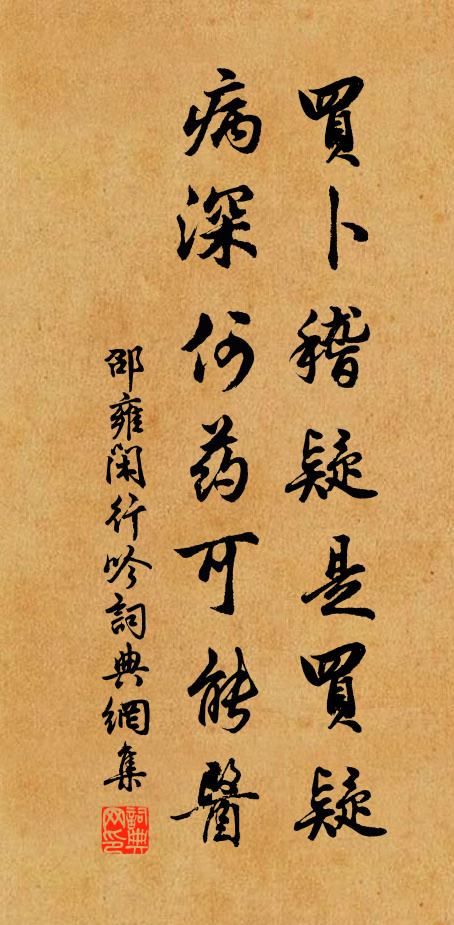 買卜稽疑是買疑
病深何药可能醫
邵雍閑行吟詞典網集
詞典网印